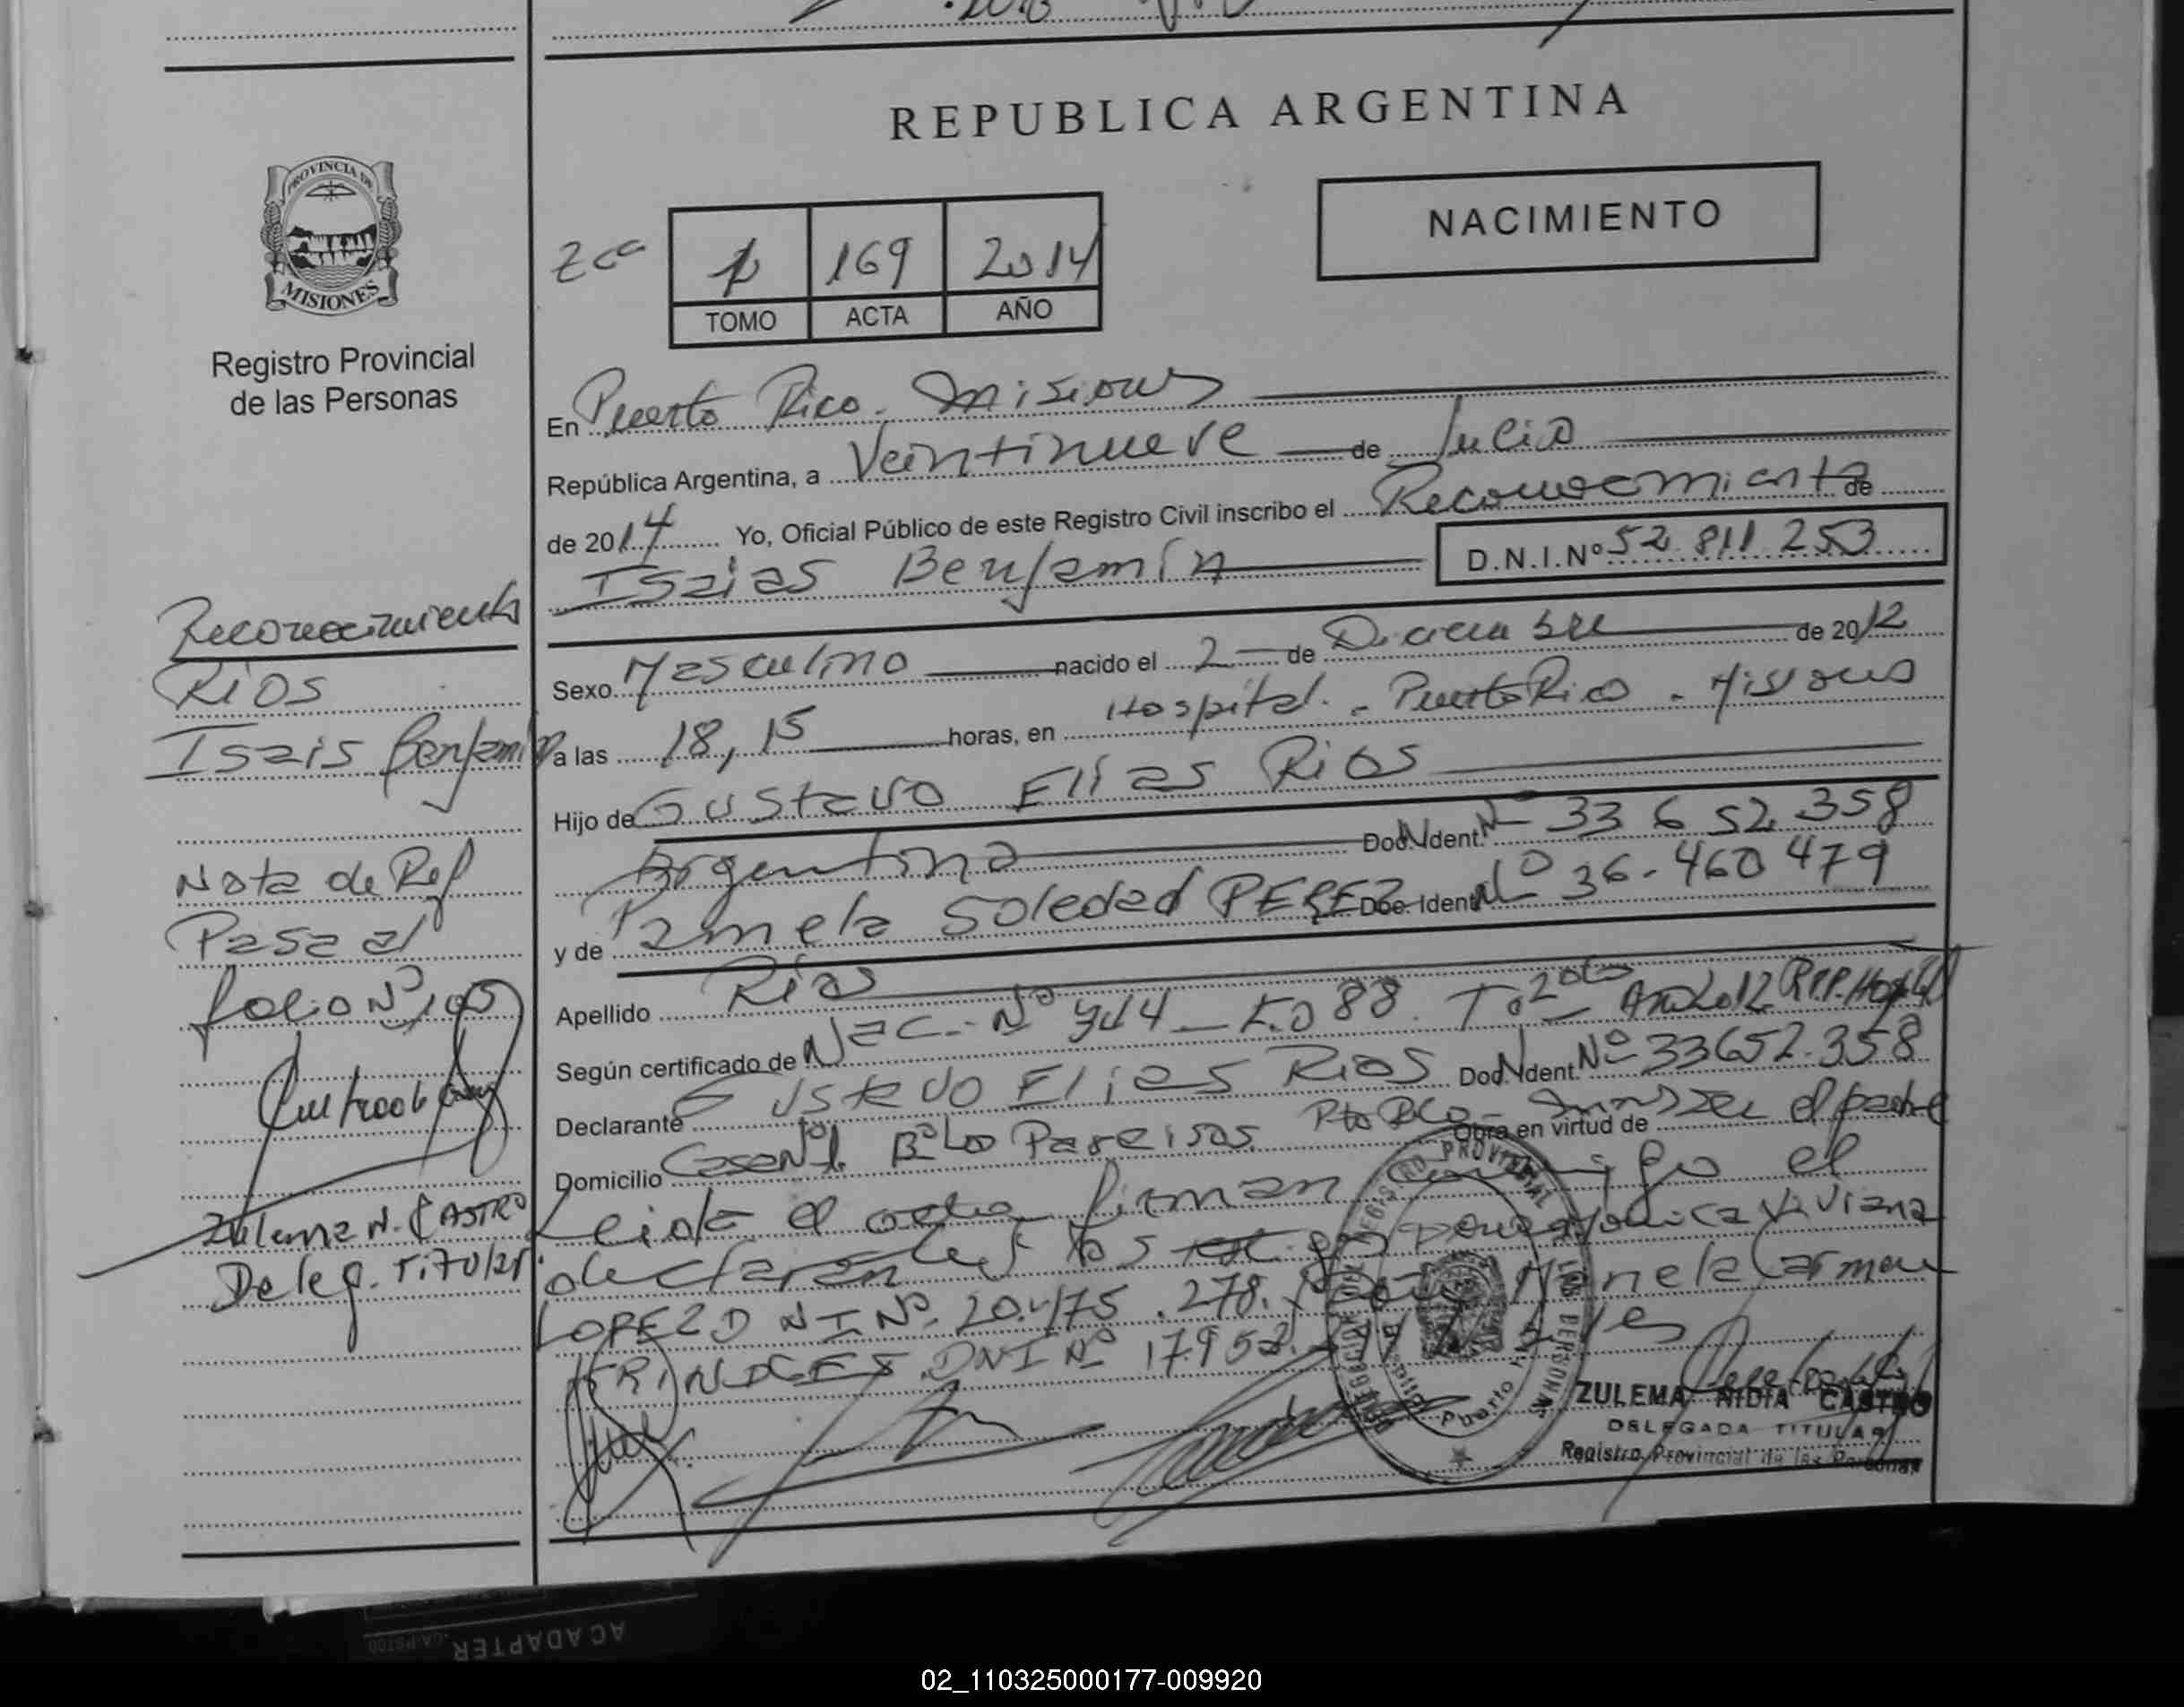 REPUBLICA ARGENTINA
NACIMIENTO
PROVINCIA DE
MISIONES
Registro Provincial
de las Personas
1 169 2014
TOMO ACTA AÑO
En Puerto Rico. Misiones
República Argentina, a Veintinueve de Julio
de 2014 Yo, Oficial Público de este Registro Civil inscribo el Reconocimiento de
Isaias Benjamín D.N.I.Nº 52.811.253
Sexo Masculino nacido el 2 de Diciembre de 2012
a las 18,15 horas, en Hospital. - Puerto Rico - Misiones
Hijo de Gustavo Elías Rios
Argentina Doc. Ident. Nº 33 652.358
y de Pamela Soledad PEREZ Doc. Ident. Nº 36.460 479
Apellido Ríos
Según certificado de Nac.- Nº Fº 88 Tº 2º Año 2012 R.P.P. Hospital
Declarante Gustavo Elias Rios Doc. Ident. Nº 33652.358
Domicilio Casa Nº Bº Los Paraisos Pto Rico - Obra en virtud de el padre
Leida el acta firman conmigo el
declarante y los testigos Viviana
LOPEZ D N I Nº 20.475.278. Mariela Carmen
DNI Nº 17.952.
Reconocimiento
RIOS
Isais Benjamin
Nota de Ref
Pasa al
folio Nº 105
Zulema N. CASTRO
Deleg. Titular
ZULEMA NIDIA CASTRO
DELEGADA TITULAR
Registro Provincial de las Personas
ACADAPTER
02_110325000177-009920